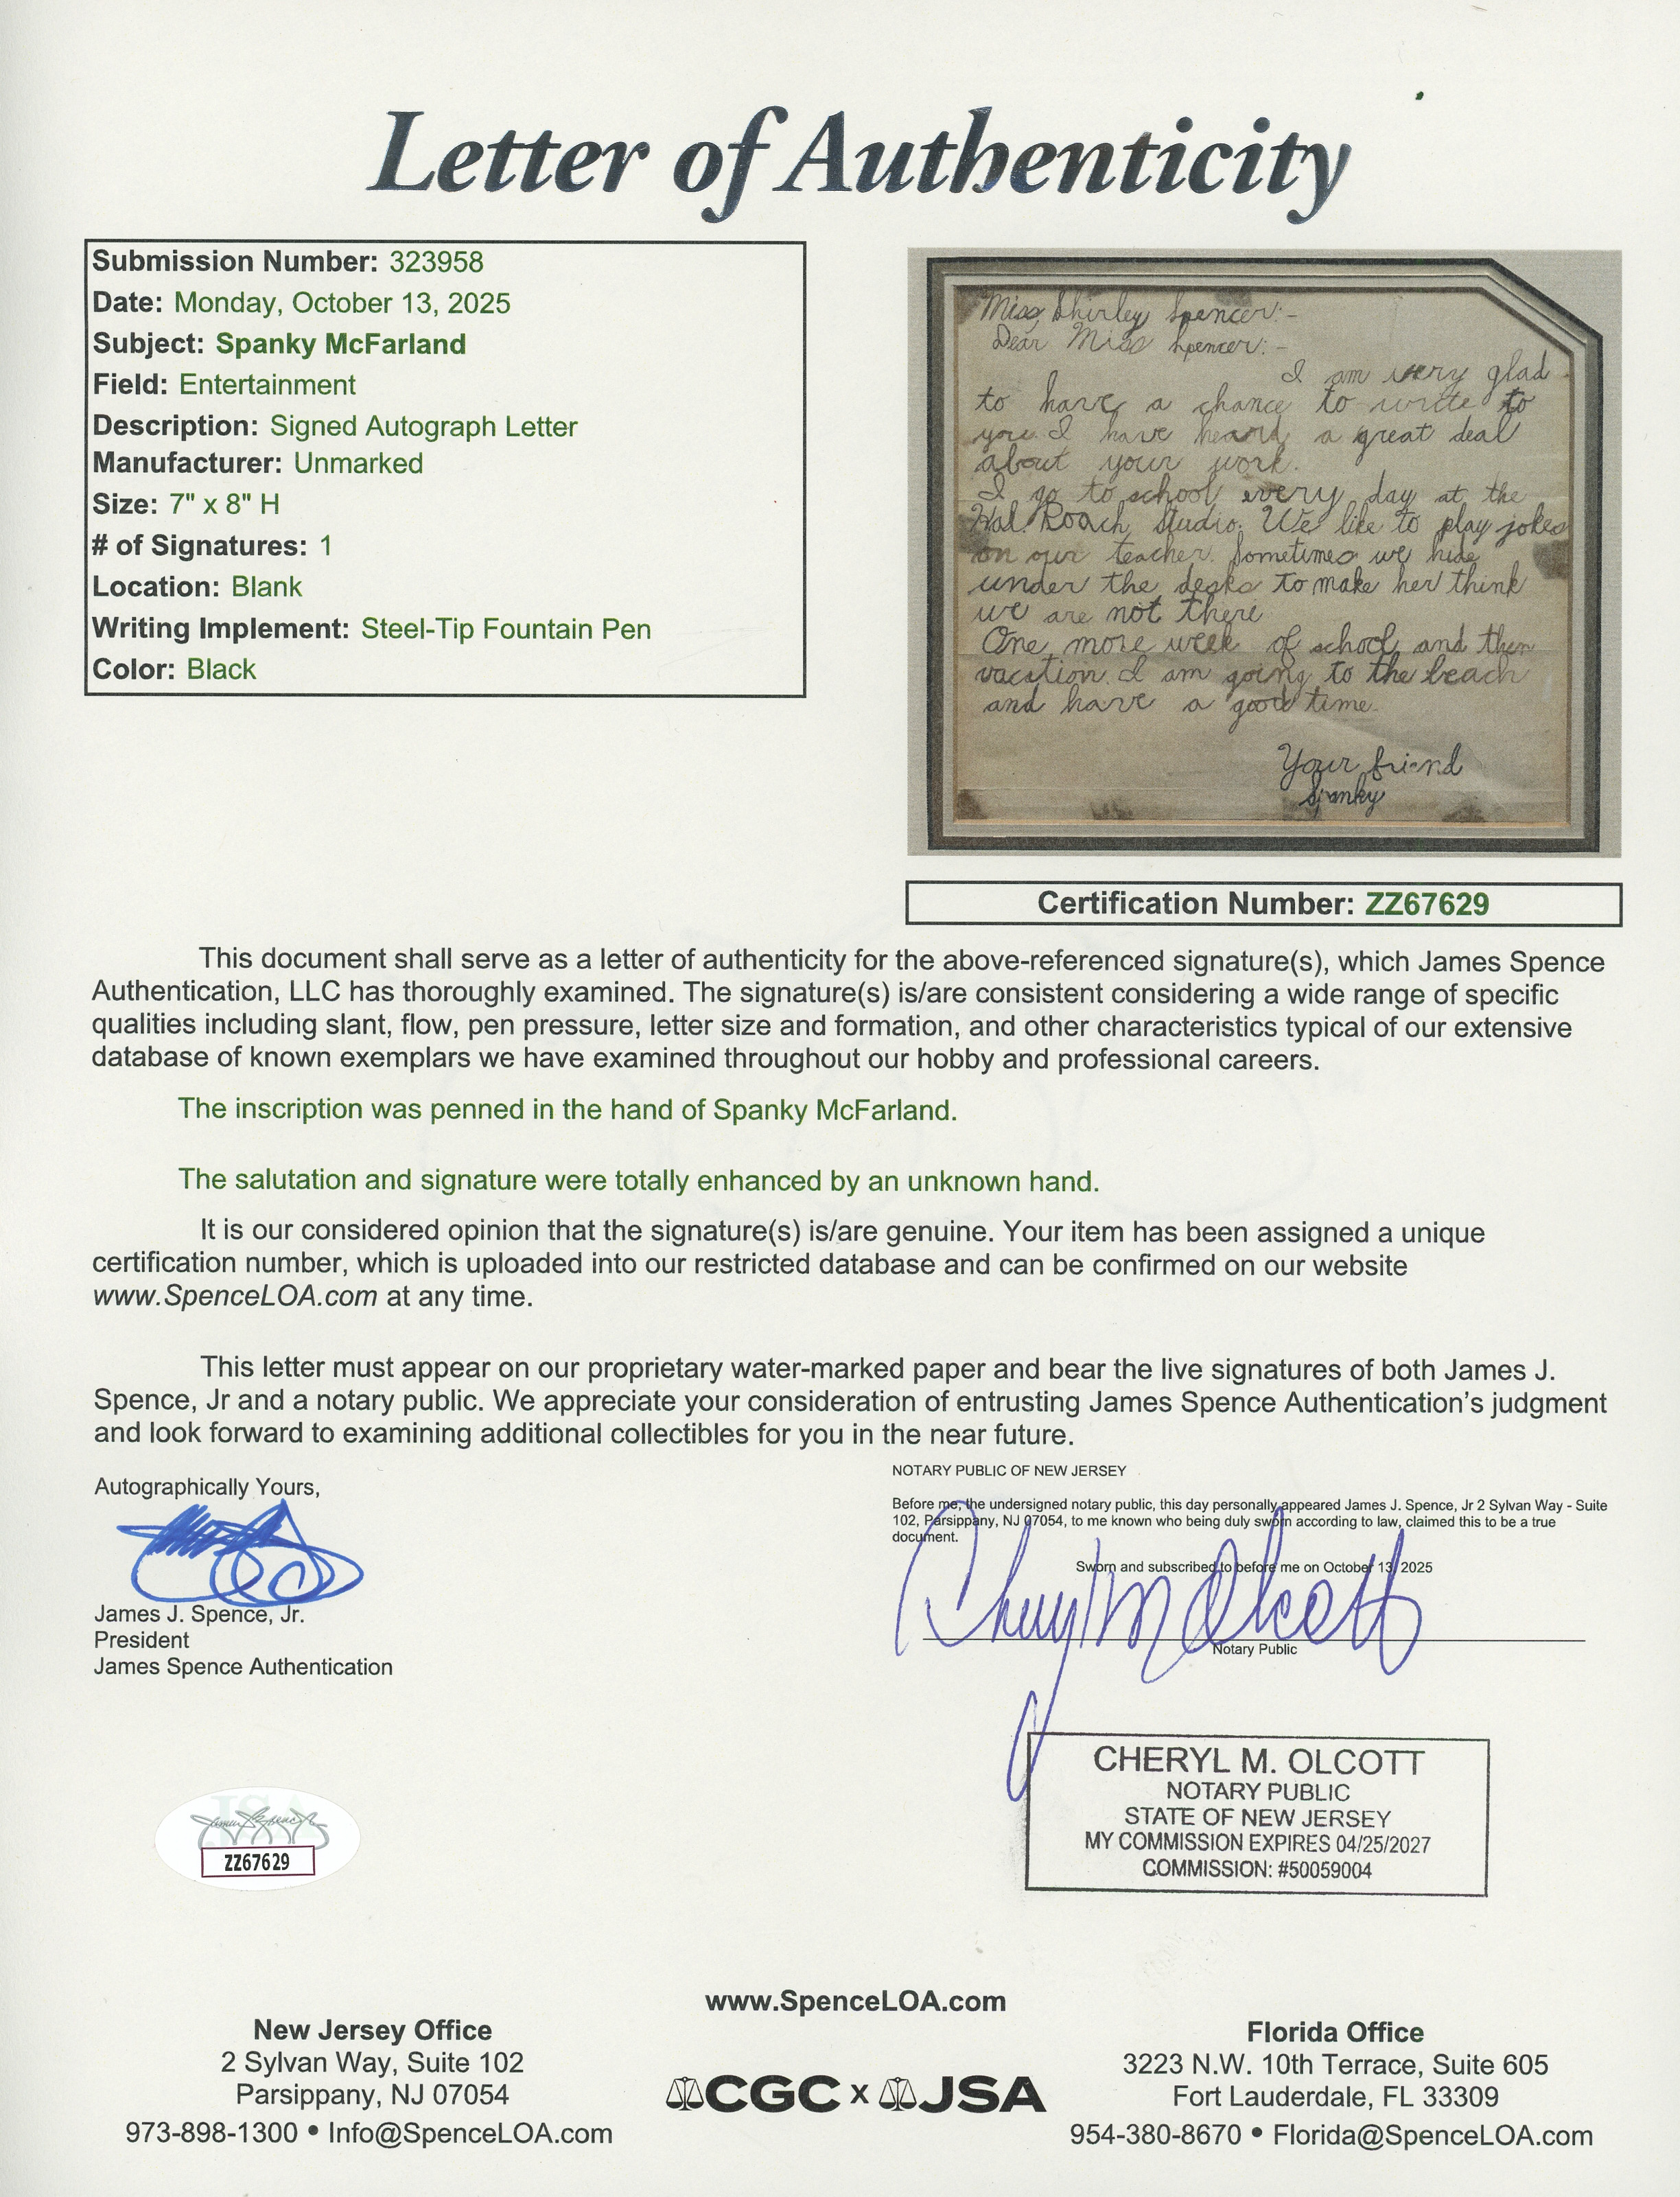 Letter of Authenticity
Submission Number: 323958
Date: Monday, October 13, 2025
Subject: Spanky McFarland
Field: Entertainment
Description: Signed Autograph Letter
Manufacturer: Unmarked
Size: 7" x 8" H
# of Signatures: 1
Location: Blank
Writing Implement: Steel-Tip Fountain Pen
Color: Black
Miss Shirley Spencer:-
Dear Miss Spencer:-
I am very glad
to have a chance to write to
you. I have heard a great deal
about your work.
I go to school every day at the
Hal Roach Studio. We like to play jokes
on our teacher. Sometimes we hide
under the desks to make her think
we are not there
One more week of school and then
vacation. I am going to the beach
and have a good time.
Your friend
Spanky
Certification Number: ZZ67629
This document shall serve as a letter of authenticity for the above-referenced signature(s), which James Spence
Authentication, LLC has thoroughly examined. The signature(s) is/are consistent considering a wide range of specific
qualities including slant, flow, pen pressure, letter size and formation, and other characteristics typical of our extensive
database of known exemplars we have examined throughout our hobby and professional careers.
The inscription was penned in the hand of Spanky McFarland.
The salutation and signature were totally enhanced by an unknown hand.
It is our considered opinion that the signature(s) is/are genuine. Your item has been assigned a unique
certification number, which is uploaded into our restricted database and can be confirmed on our website
www.SpenceLOA.com at any time.
This letter must appear on our proprietary water-marked paper and bear the live signatures of both James J.
Spence, Jr and a notary public. We appreciate your consideration of entrusting James Spence Authentication's judgment
and look forward to examining additional collectibles for you in the near future.
Autographically Yours,
James J. Spence, Jr.
President
James Spence Authentication
NOTARY PUBLIC OF NEW JERSEY
Before me, the undersigned notary public, this day personally appeared James J. Spence, Jr 2 Sylvan Way - Suite
102, Parsippany, NJ 07054, to me known who being duly sworn according to law, claimed this to be a true
document.
Sworn and subscribed to before me on October 13, 2025
Cheryl M Olcott
Notary Public
CHERYL M. OLCOTT
NOTARY PUBLIC
STATE OF NEW JERSEY
MY COMMISSION EXPIRES 04/25/2027
COMMISSION: #50059004
JSA
James Spence
ZZ67629
www.SpenceLOA.com
New Jersey Office
2 Sylvan Way, Suite 102
Parsippany, NJ 07054
973-898-1300 • Info@SpenceLOA.com
CGC x JSA
Florida Office
3223 N.W. 10th Terrace, Suite 605
Fort Lauderdale, FL 33309
954-380-8670 • Florida@SpenceLOA.com